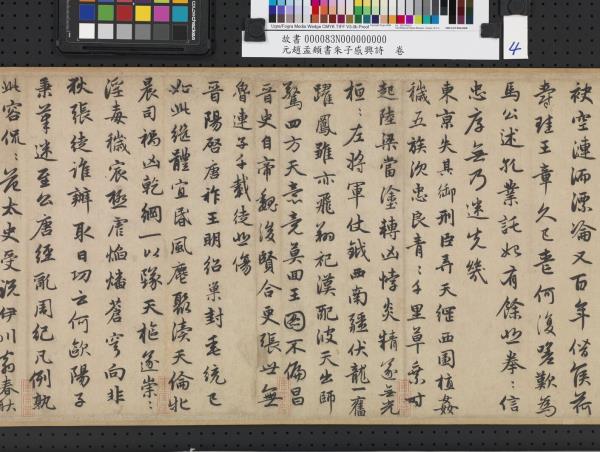 Ugra/Fogra Media Wedge CMYK TIFF V3.0b Proof
故書 000083N000000000
元趙孟頫書朱子感興詩　卷
4
袂空漣洏漂淪又百年僭侯荷
爵珪王章久已喪何復嗟歎為
馬公述孔業託始有餘悲拳：信
忠厚無乃迷先幾
東京失其御刑臣弄天綱西園植姦
穢五族沈忠良青：千里草乘時
起陸梁當塗轉凶悖炎精遂無光
桓：左將軍仗鉞西南疆伏龍一奮
躍鳳雛亦飛翔祀漢配彼天出師
驚四方天意竟莫回王圖不偏昌
晉史自帝魏後賢合更張世無
魯連子千載徒悲傷
晉陽啓唐祚王明紹巢封垂統已
如此繼體宜昏風麀聚瀆天倫牝
晨司禍凶乾綱一以隊天樞遂崇：
淫毒穢宸極虐焰燔蒼穹向非
狄張徒誰辦取日功云何歐陽子
秉筆迷至公唐經亂周紀凡例孰
此容侃：范太史受說伊川翁春秋